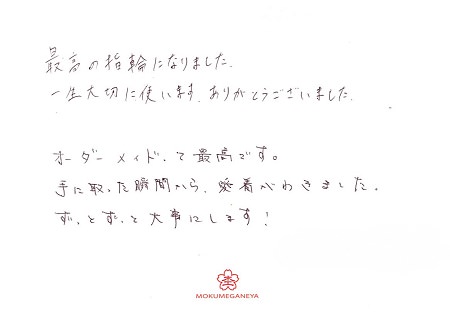 最高の指輪になりました.
一生大切に使います. ありがとうございました.
オーダーメイドって最高です。
手に取った瞬間から、愛着がわきました.
ずっとずっと大事にします!
MOKUMEGANEYA